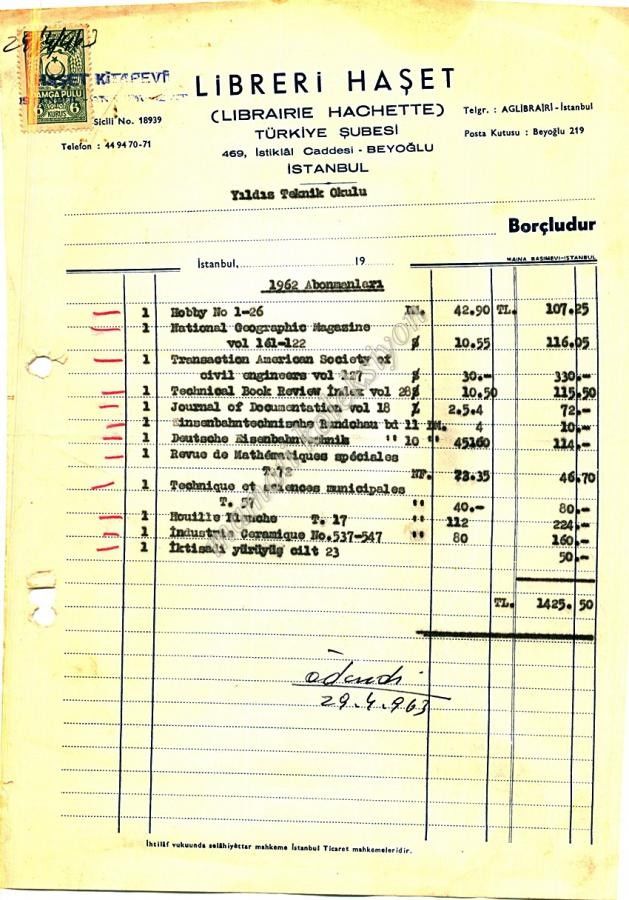 29/4/963
HAŞET KİTAPEVİ
DAMGA PULU
KURUŞ
Sicili No. 18939
Telefon : 44 94 70-71
LİBRERİ HAŞET
(LIBRAIRIE HACHETTE)
TÜRKİYE ŞUBESİ
469, İstiklâl Caddesi - BEYOĞLU
İSTANBUL
Telgr. : AGLIBRAIRI - İstanbul
Posta Kutusu : Beyoğlu 219
Yıldız Teknik Okulu
Borçludur
İstanbul, 19
MAINA BASIMEVİ-İSTANBUL
1962 Abonmanları
1 Hobby No 1-26 DM. 42.90 TL. 107.25
1 National Geographic Magazine
vol 161-122 $ 10.55 116.05
1 Transaction American Society of
civil engineers vol 127 $ 30.- 330.-
1 Technical Book Review İndex vol 28 $ 10.50 115.50
1 Journal of Documentation vol 18 £ 2.5.4 72.-
1 Einsenbahntechnische Rundchau bd 11 DM. 4 10.-
1 Deutsche Eisenbahntechnik " 10 " 45160 114.-
1 Revue de Mathématiques spéciales
T.72 NF. 23.35 46.70
1 Technique et sciences municipales
T. 57 " 40.- 80.-
1 Houille Blanche T. 17 " 112 224.-
1 İndustrie Ceramique No.537-547 " 80 160.-
1 İktisadi yürüyüş cilt 23 50.-
TL. 1425.50
ödendi
29.4.963
İhtilâf vukuunda selâhiyettar mahkeme İstanbul Ticaret mahkemeleridir.